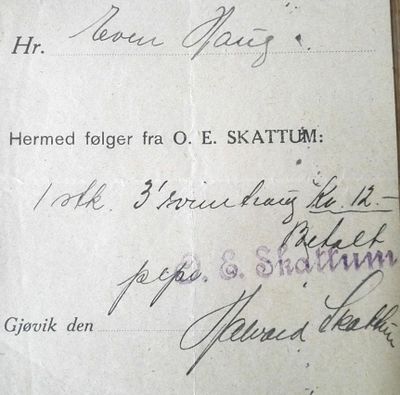 Hr. Even Haug
Hermed følger fra O. E. SKATTUM:
1 stk. 3' svintraug Kr. 12.-
Betalt
O. E. Skattum
Gjøvik den Halvard Skattum